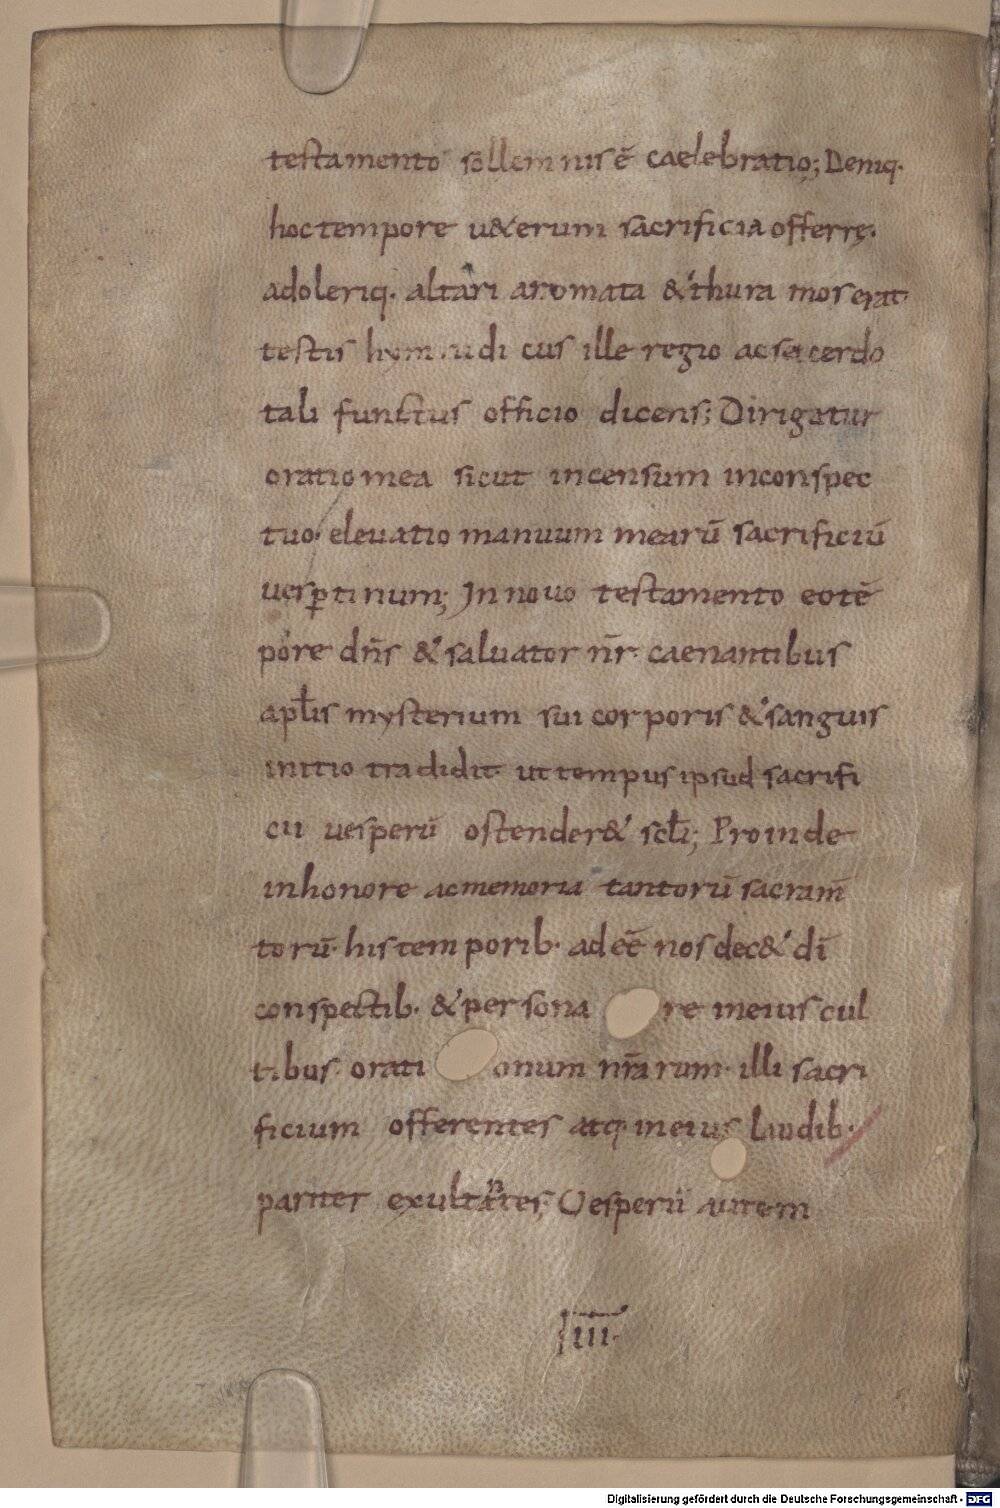 testamento sollemnis ē caelebratio; Deniq·
hoc tempore u&erum sacrificia offerre·
adoleriq· altari aromata & thura mos erat
testis hymnidicus ille regio ac sacerdo
tali functus officio dicens; Dirigatur
oratio mea sicut incensum in conspec
tuo· eleuatio manuum mearū sacrificiū
vesꝑtinum; In nouo testamento eo tē
pore dn̄s & saluator nr̄ caenantibus
apłis mysterium sui corporis & sanguis
initio tradidit· ut tempus ipsud sacrifi
cii vesperū ostender& sc̄łi; Proinde
in honore ac memoria tantorū sacram̄
torū· his temporib· adeē nos dec& dī
conspectib· & persona re in eius cul
tibus· orati onum nr̄arum· illi sacri
ficium offerentes atq· in eius laudib·
pariter exultantes; Vesperū autem
IIII·
Digitalisierung gefördert durch die Deutsche Forschungsgemeinschaft - DFG